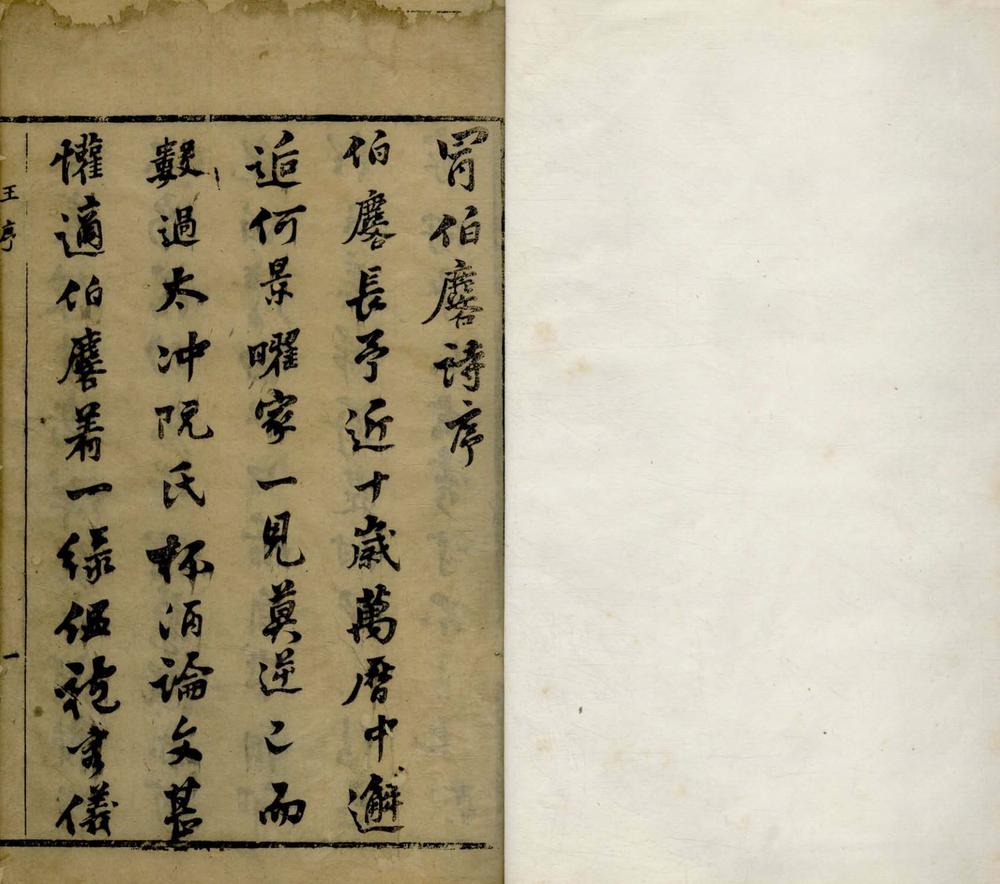 胥伯麐詩序
伯麐長予近十歲萬曆中邂
逅何景曜家一見莫逆已而
數過太冲阮氏杯酒論文甚
懽適伯麐着一綠縕袍客儀
王序
一